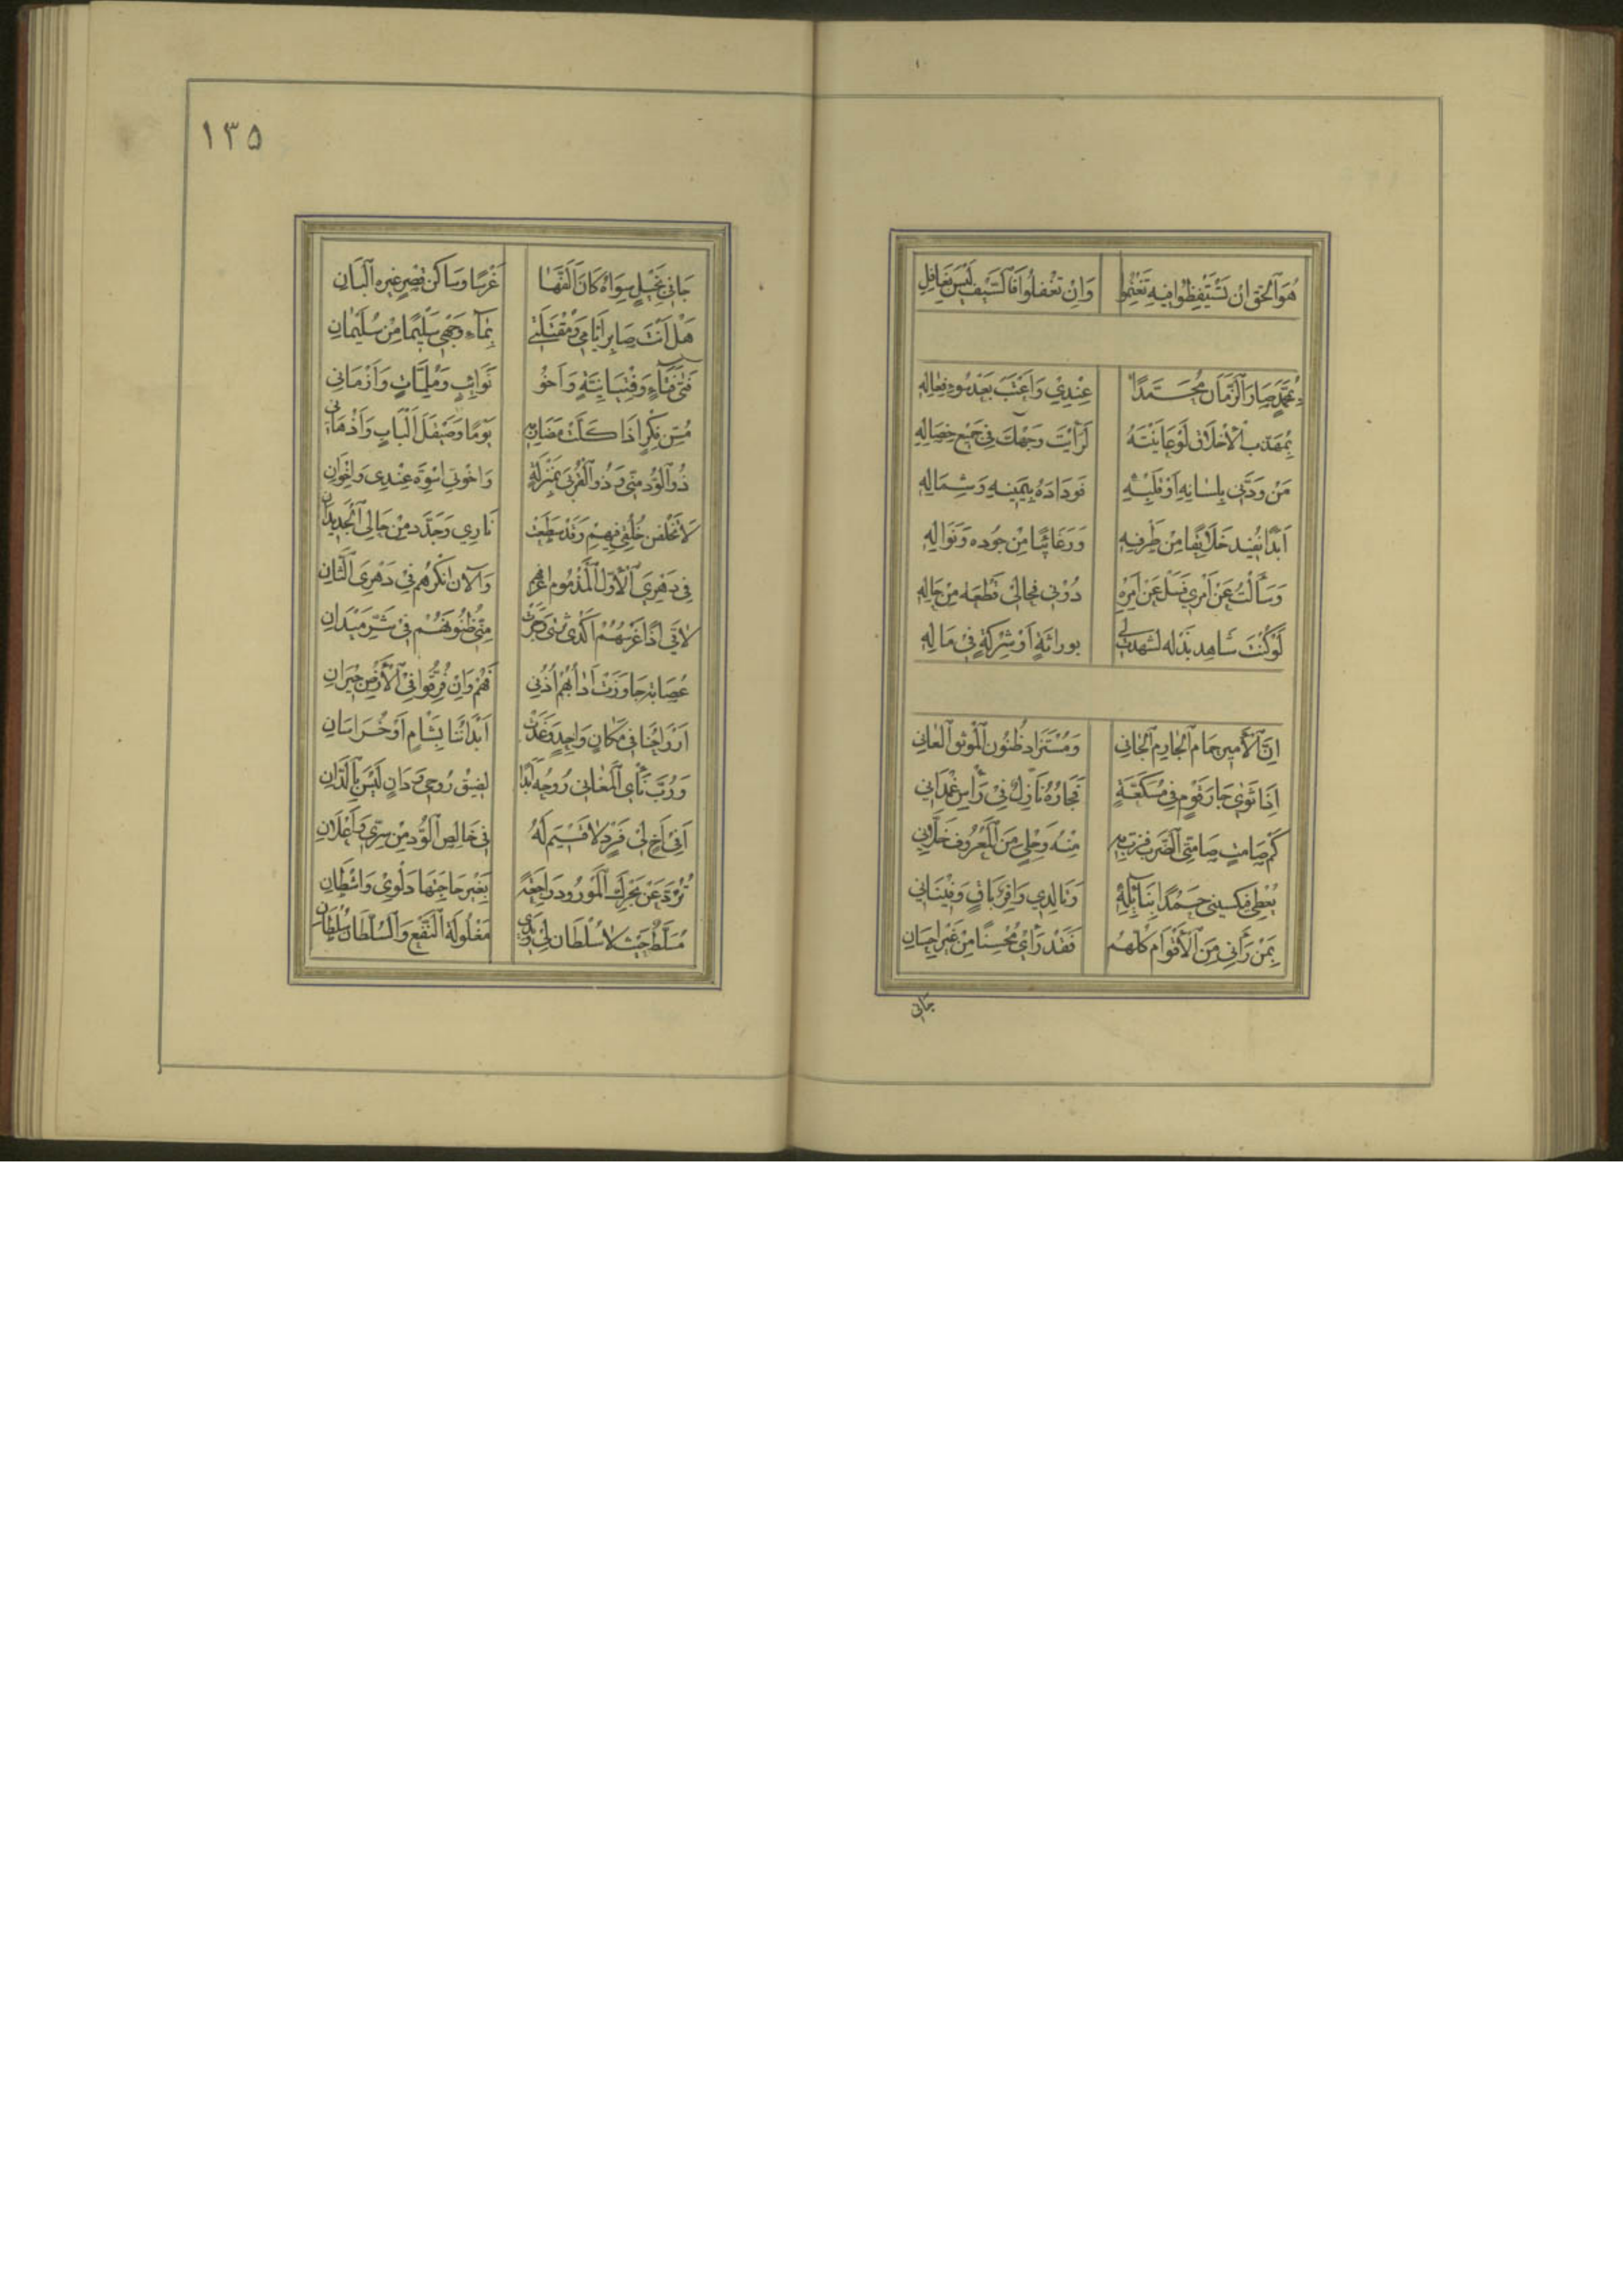 هُوَ ٱلْحَقُّ اِنْ تَسْتَيْقِظُوا فِيهِ تَغْنَمُوا وَاِنْ تَغْفُلُوا فَالسَّيْفُ لَيْسَ بِغَافِلِ
بِمُحَمَّدٍ صَارَ ٱلزَّمَانُ مُحَمَّدًا عِنْدِي وَاَعْتَبَ بَعْدَ سُوءِ فِعَالِهِ
بِمُهَذَّبِ ٱلْاَخْلَاقِ لَوْ عَايَنْتَهُ لَرَاَيْتَ وَجْهَكَ فِي جَمِيعِ خِصَالِهِ
مَنْ وَدَّنِي بِلِسَانِهِ اَوْ قَلْبِهِ فَوِدَادُهُ بِيَمِينِهِ وَشِمَالِهِ
اَبَدًا نُفِيدُ خَلَائِقًا مِنْ ظَرْفِهِ وَرَغَائِبًا مِنْ جُودِهِ وَنَوَالِهِ
وَسَاَلْتُ عَنْ اَمْرِي فَسَلْ عَنْ اَمْرِهِ دُونِي فَحَالِي قِطْعَةٌ مِنْ حَالِهِ
لَوْ كُنْتَ شَاهِدَ بَذْلِهِ لَشَهِدْتَ لِي بِوِرَاثَةٍ اَوْ شِرْكَةٍ فِي مَالِهِ
اِنَّ ٱلْاَمِيرَ حِمَامُ ٱلْجَارِمِ ٱلْجَانِي وَمُسْتَرَادُ ظُنُونِ ٱلْمُوثَقِ ٱلْعَانِي
اِذَا ثَوَى جَارُ قَوْمٍ فِي فَجَارُهُ نَازِلٌ فِي رَاْسِ غُمْدَانِ
مِنْهُ وَحَلْيٍ مِنَ ٱلْمَعْرُوفِ حَلَّانِي
يُعْطِي فَيَكْسِبُنِي حَمْدًا بِنَائِلِهِ وَتَالِدِي وَافِرٌ بَاقٍ وَقُنْيَانِي
بِمَنْ رَاٰنِي مِنَ ٱلْاَقْوَامِ كُلِّهُمُ فَقَدْ رَاَى مُحْسِنًا مِنْ غَيْرِ اِحْسَانِ
جانى
١٣٥
جَانِي نَخِيلٍ سِوَاهُ كَانَ اَلَّفَهَا غَرْسًا وَسَاكِنُ قَصْرٍ غَيْرُهُ ٱلْبَانِ
هَلْ اَنْتَ صَائِنُ اَيَّامِي وَمُقْتَبَلِي بِمَاءِ وَجْهِي سَلِيمًا مِنْ سُلَيْمَانِ
فَتَى فَتَاءٍ وَفِتْيَانِيَّةٍ وَاَخُو نَوَائِبٍ وَمُلِمَّاتٍ وَاَزْمَانِ
مُسِنُّ فِكْرٍ اِذَا كَلَّتْ مَضَارِبُهُ يَوْمًا وَصَيْقَلُ اَلْبَابٍ وَاَذْهَانِ
ذُو ٱلْوُدِّ مِنِّي وَذُو ٱلْقُرْبَى بِمَنْزِلَةٍ وَاِخْوَتِي اُسْوَةٌ عِنْدِي وَاِخْوَانِ
لَا تُخْلِقَنْ خُلُقِي فِيهِمْ وَقَدْ سَطَعَتْ نَارِي وَجَدَّدَ مِنْ حَالِي ٱلْجَدِيدَانِ
فِي دَهْرِيَ ٱلْاَوَّلِ ٱلْمَذْمُومِ اَعْرِفُهُمْ وَٱلْاٰنَ اُنْكِرُهُمْ فِي دَهْرِيَ ٱلثَّانِ
لَاقَى اِذًا غَرْسُهُمْ اَكْدَى ثَرًى وَجَرَتْ مِنِّي ظُنُونُهُمُ فِي شَرِّ مَيْدَانِ
عِصَابَةٌ جَاوَرَتْ اٰدَابُهُمْ اَدَبِي فَهُمْ وَاِنْ فُرِّقُوا فِي ٱلْاَرْضِ جِيرَانِ
اَرْوَاحُنَا فِي مَكَانٍ وَاحِدٍ وَغَدَتْ اَبْدَانُنَا بِشَاٰمٍ اَوْ خُرَاسَانِ
وَرُبَّ نَائِي ٱلْمَغَانِي رُوحُهُ اَبَدًا لَصِيقُ رُوحِي وَدَانٍ لَيْسَ بِٱلدَّانِ
اَفِي اَخٍ لِي فَرْدٍ لَا قَسِيمَ لَهُ فِي خَالِصِ ٱلْوُدِّ مِنْ سِرِّي وَاِعْلَانِ
تُرَدُّ عَنْ بَحْرِكَ ٱلْمَوْرُودِ رَاجِعَةً بِغَيْرِ حَاجَتِهَا دَلْوِي وَاَشْطَانِ
مُسَلَّطٌ حَيْثُ لَا سُلْطَانَ لِي وَيَدِي مَغْلُولَةُ ٱلنَّفْعِ وَٱلسُّلْطَانُ سُلْطَانِ